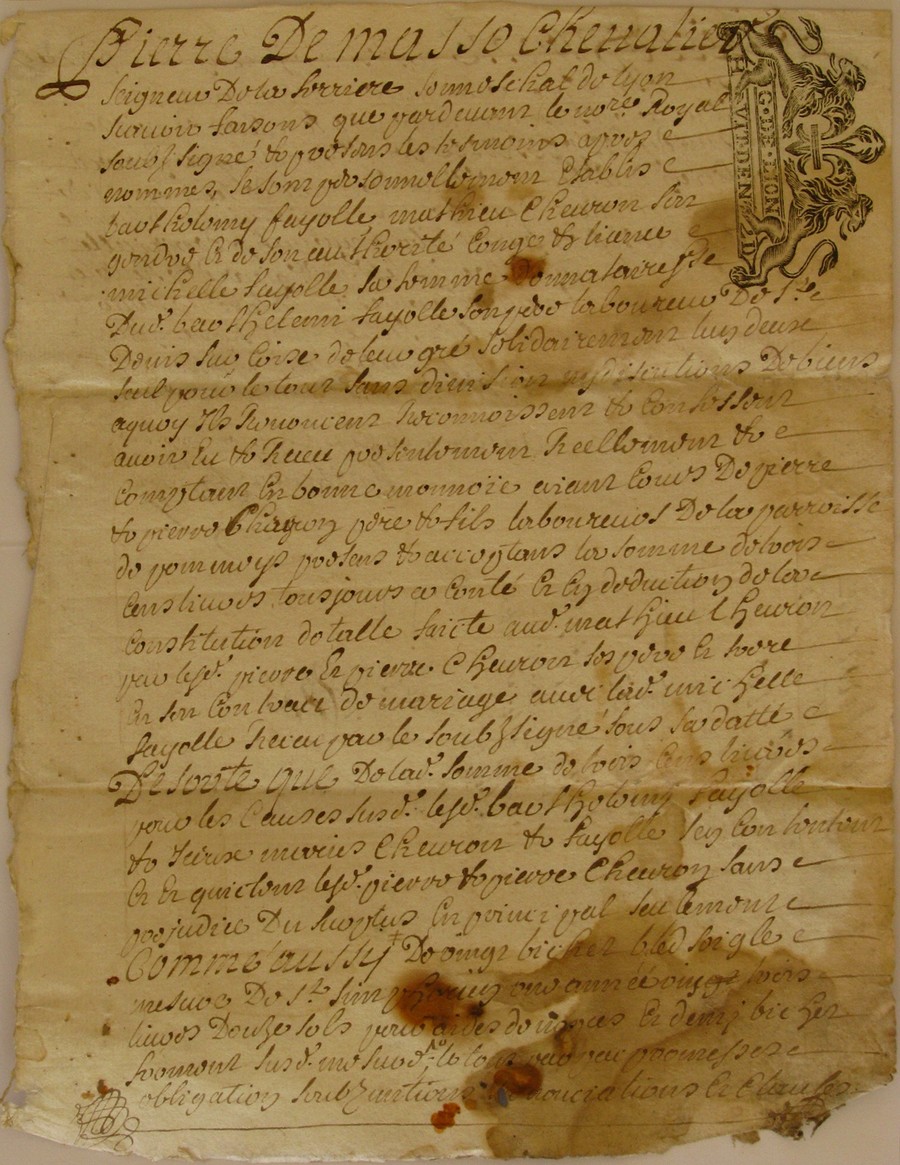 Pierre De masso Chevallier
seigneur De la ferriere senneschal de lyon
scavoir faisons que pardevant le nore Royal
soubz signé & presans les tesmoins apres
nommes, se sont personnellement Establis
barthelemy fayolle mathieu Chevron son
gendre & de son authorité Congé & licance
michelle fayolle sa femme Donnataires de
Dud. barthelemi fayolle son pere laboureur De St
Denis sur Coise de leur gré solidairement luy deux
seul pour le tout sans division ny discutions De biens
aquoy Ils Renoncent Reconnoissent & Confessent
avoir Eu & Receu presentement Reellement &
Comptant En bonne monnoie aiant Cours De pierre
& pierre Chevron pere & fils laboureurs De la parroisse
de pommeys presens & acceptans la somme de trois
Cens livres tousjours a Conté Et En deduction de la
Constitution de talle faicte aud. mathieu Chevron
par lesd. pierre Et pierre Chevron ses pere Et frere
En son Contract de mariage avec lad. michelle
fayolle Receu par le soubzsigné sous sa datte
De sorte que De lad. somme de trois Cens livres
pour les Causes susd. lesd. barthelemy fayolle
& Iceux mariés Chevron & fayolle sen Contentent
Et En quictent lesd. pierre & pierre Chevron sans
prejudice Du surplus En principal seulement
Comme aussy De vingt bichet bled seigle
mesure De St simphorien une année vingt trois
livres Douze sols pour aides de nopces Et demi bichet
froment susd. mesure le tout par promesses
obligation soubz mitions Renonciations Et Clauses
G. DE LION
HVIT DEN. 2D